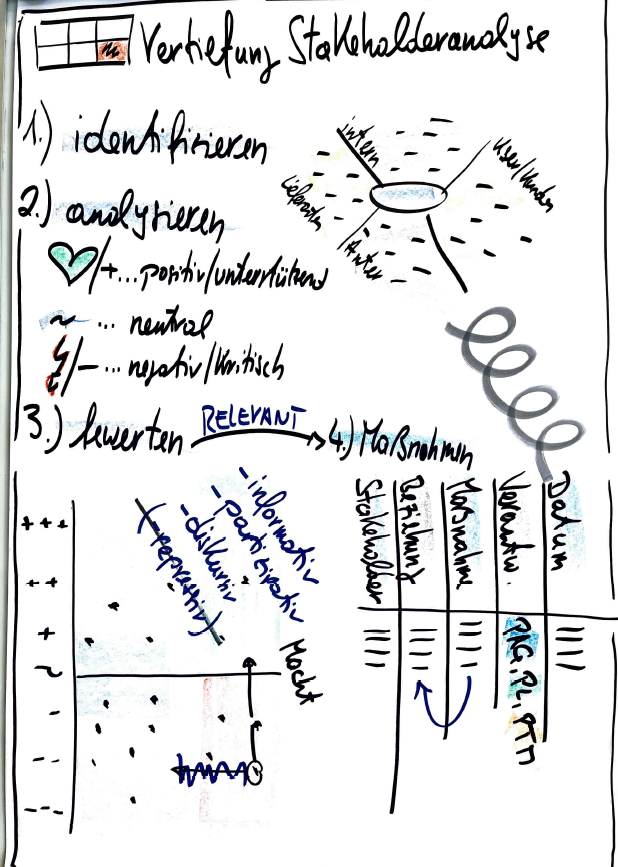 Vertiefung Stakeholderanalyse
1.) identifizieren
intern
User/Kunden
Lieferanten
2.) analysieren
/+... positiv/unterstützend
~ ... neutral
/- ... negativ/kritisch
3.) bewerten
RELEVANT
4.) Maßnahmen
- informativ
- partizipativ
- diskursiv
(-repressiv)
Stakeholder
Beziehung
Maßnahme
Verantw.
Datum
+++
++
+
~
-
--
---
Macht
PAG, PL, PTM